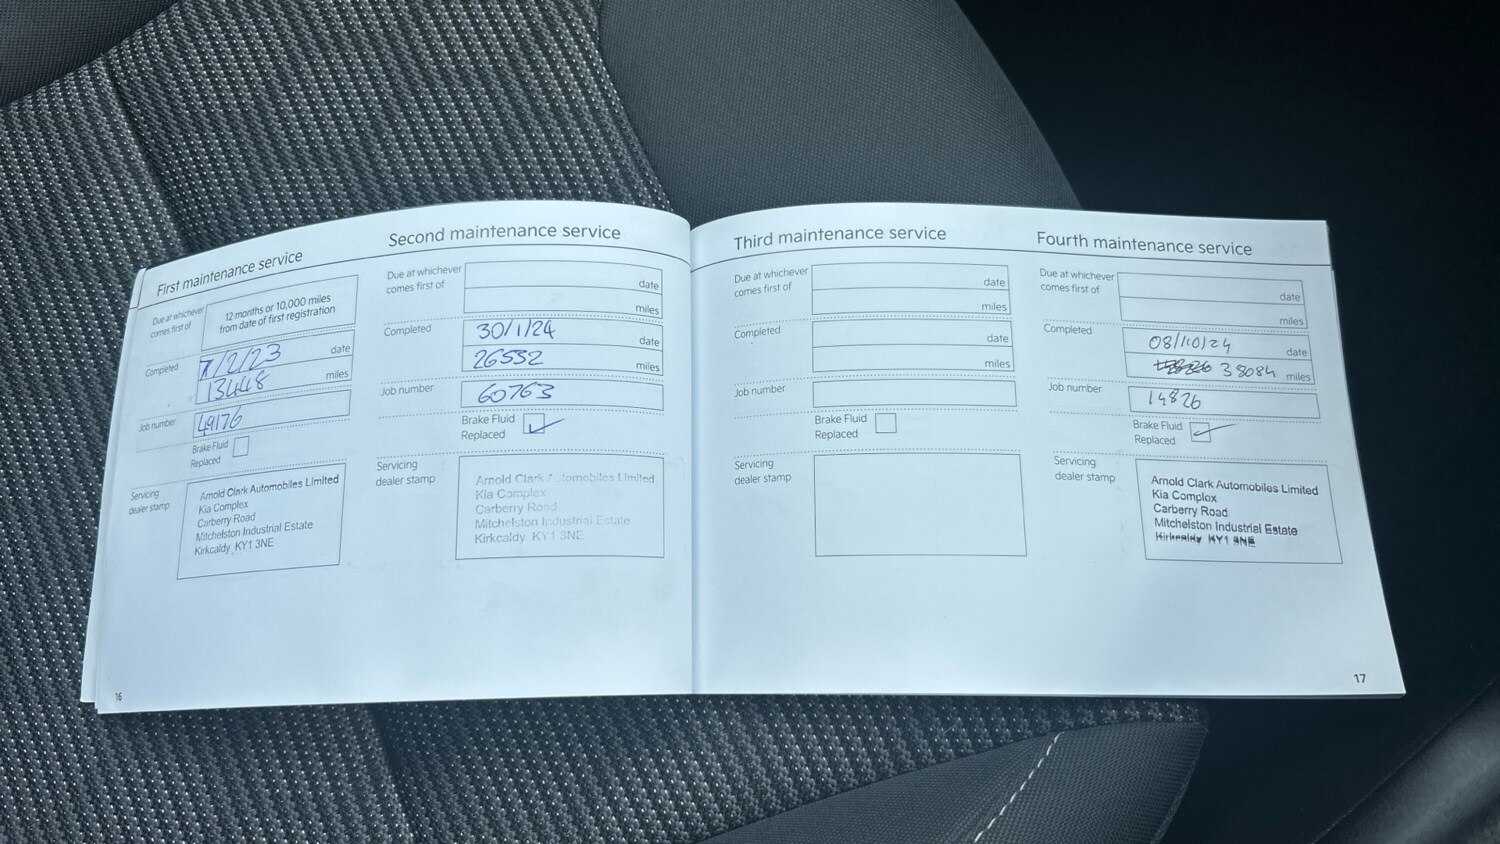 First maintenance service
Due at whichever
comes first of
12 months or 10,000 miles
from date of first registration
Completed
7/2/23 date
13448 miles
Job number
49176
Brake Fluid
Replaced
Servicing
dealer stamp
Arnold Clark Automobiles Limited
Kia Complex
Carberry Road
Mitchelston Industrial Estate
Kirkcaldy KY1 3NE
16
Second maintenance service
Due at whichever
comes first of
date
miles
Completed
30/1/24 date
26532 miles
Job number
60763
Brake Fluid
Replaced
Servicing
dealer stamp
Arnold Clark Automobiles Limited
Kia Complex
Carberry Road
Mitchelston Industrial Estate
Kirkcaldy KY1 3NE
Third maintenance service
Due at whichever
comes first of
date
miles
Completed
date
miles
Job number
Brake Fluid
Replaced
Servicing
dealer stamp
Fourth maintenance service
Due at whichever
comes first of
date
miles
Completed
08/10/24 date
38084 miles
Job number
14826
Brake Fluid
Replaced
Servicing
dealer stamp
Arnold Clark Automobiles Limited
Kia Complex
Carberry Road
Mitchelston Industrial Estate
Kirkcaldy KY1 3NE
17